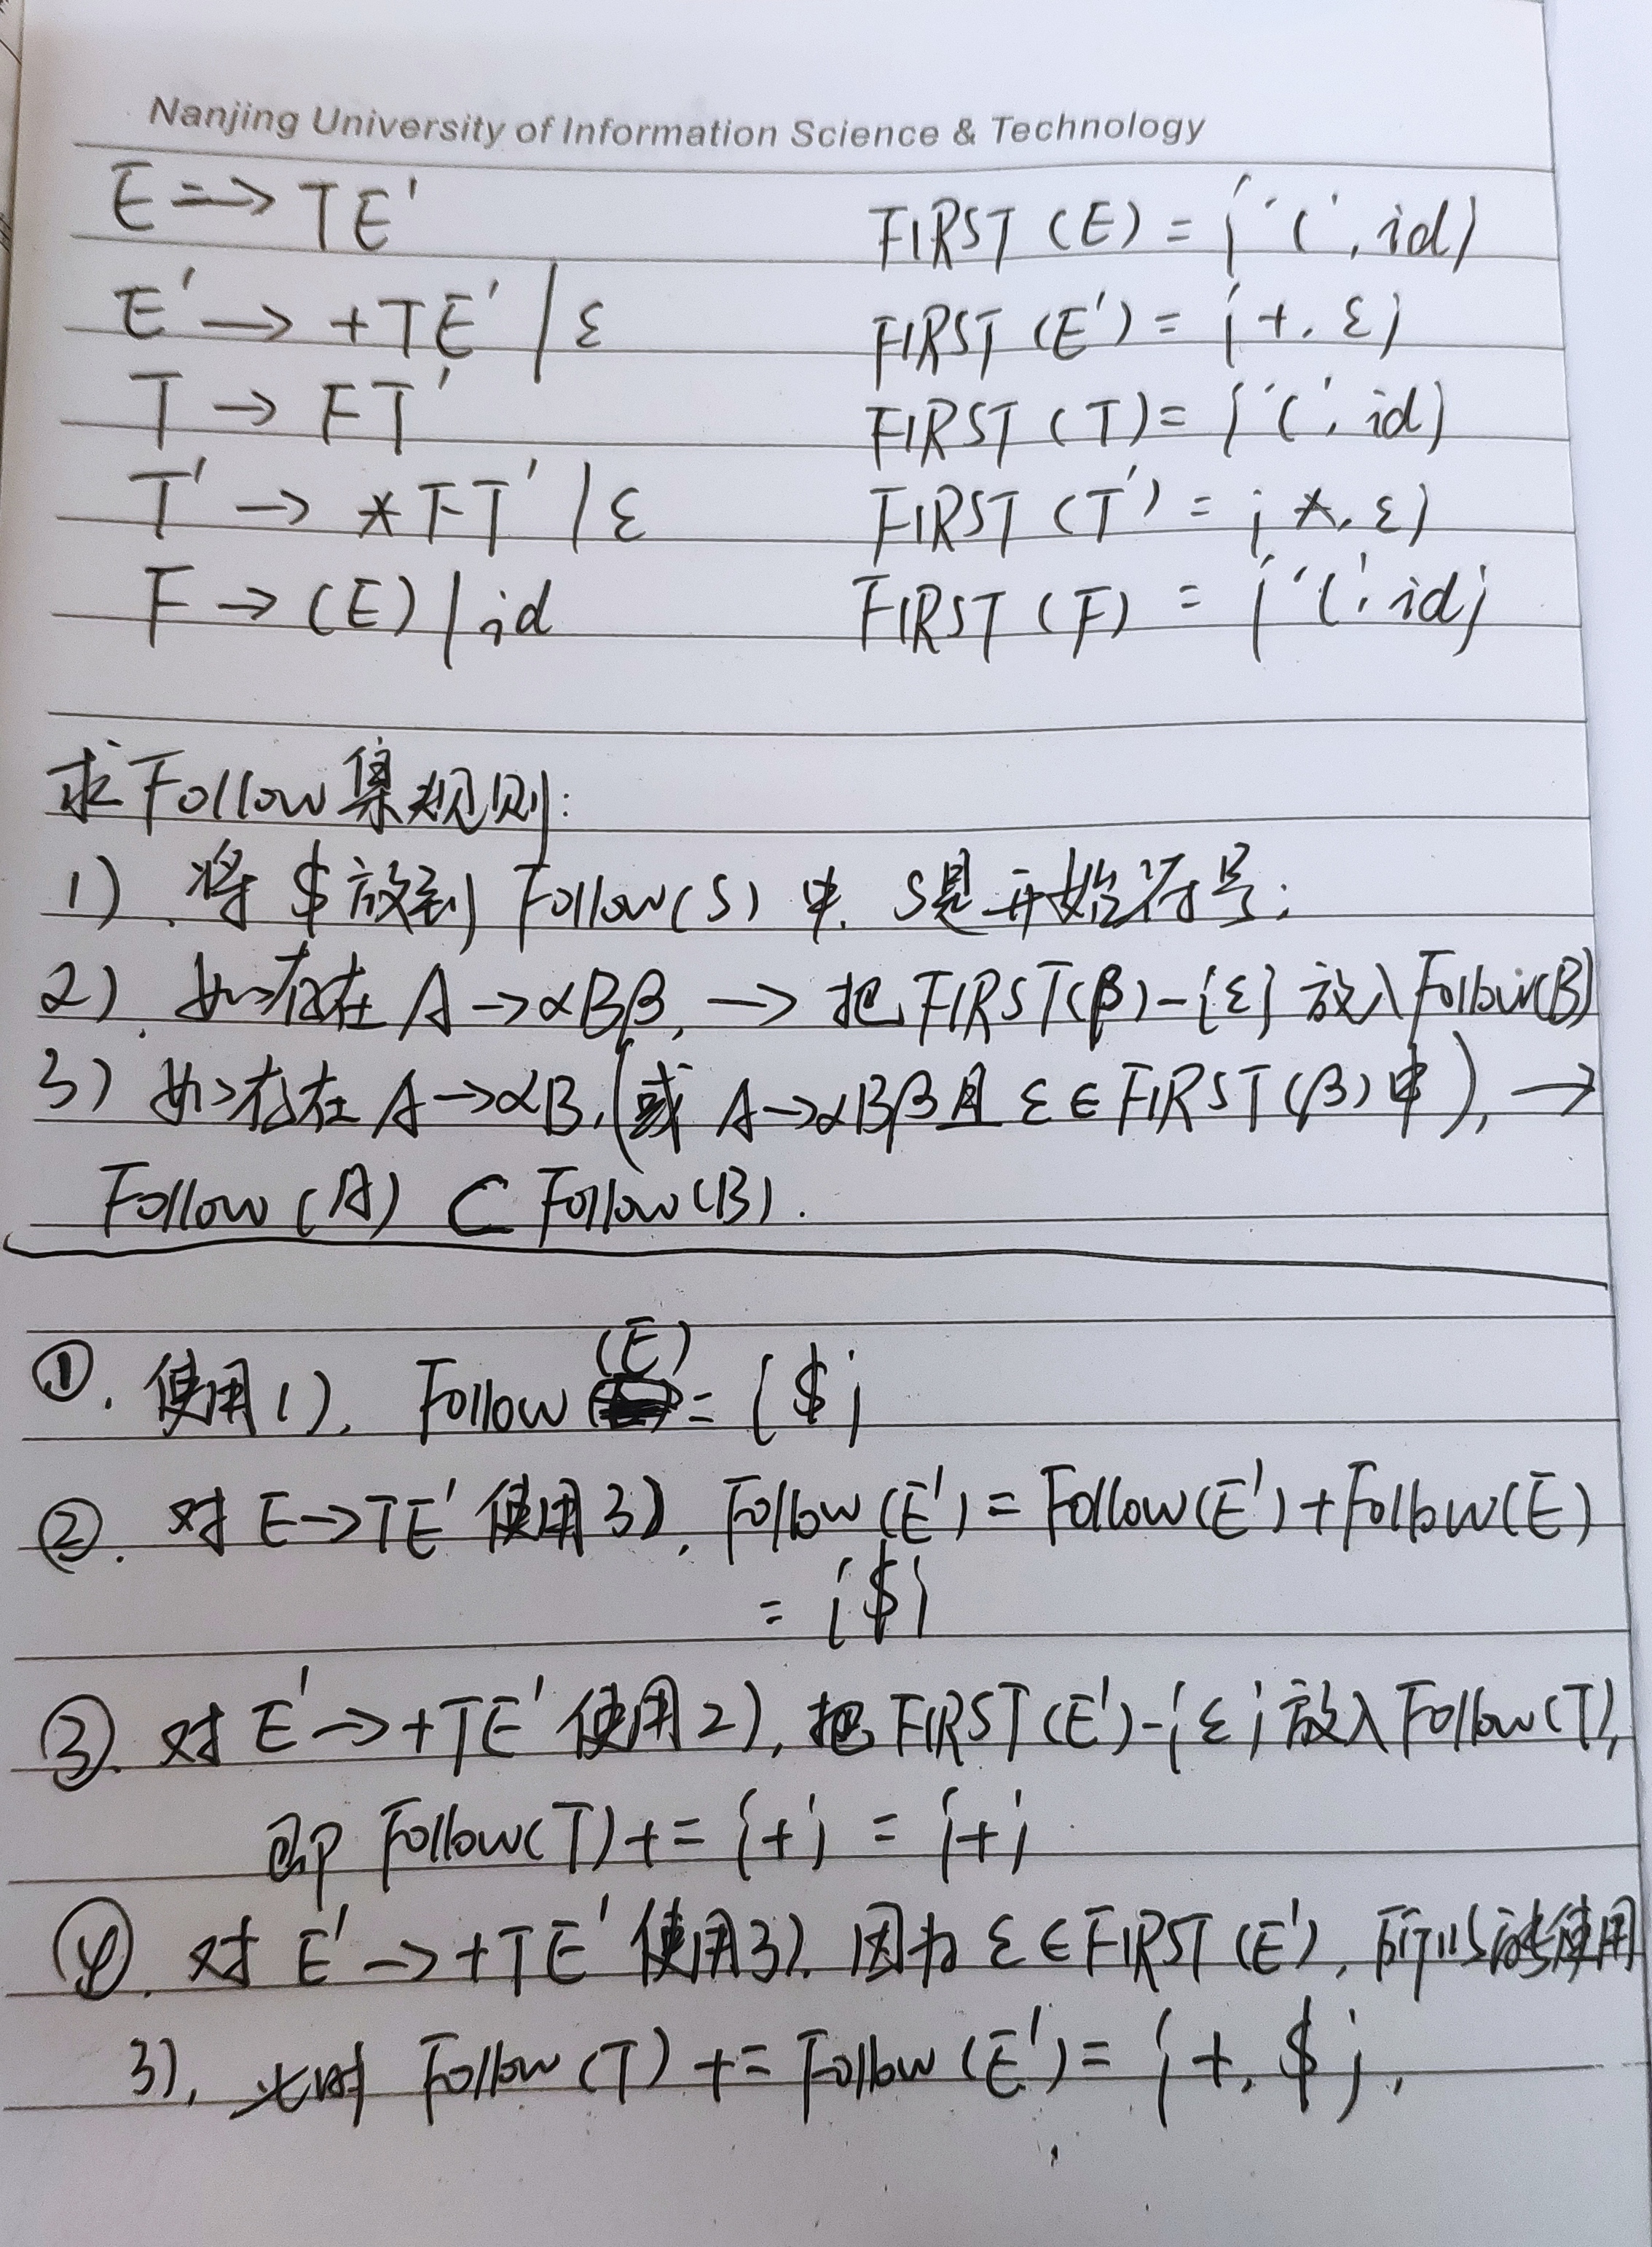 Nanjing University of Information Science & Technology
E => TE' FIRST (E) = {'(', id}
E' → +TE' | ε FIRST (E') = {+, ε}
T → FT' FIRST (T) = {'(', id}
T' → *FT' | ε FIRST (T') = {*, ε}
F → (E) | id FIRST (F) = {'(', id}
求Follow集规则:
1). 将 $ 放到 Follow(S) 中. S是开始符号;
2). 如存在 A→αBβ, → 把 FIRST(β)-{ε} 放入 Follow(B)
3) 如存在 A→αB, (或 A→αBβ且 ε∈FIRST(β)中), →
Follow (A) ⊂ Follow(B).
①. 使用1), Follow (E) = {$}
②. 对 E→TE' 使用3), Follow (E') = Follow(E') + Follow(E)
= {$}
③. 对 E' → +TE' 使用2), 把 FIRST(E')-{ε} 放入 Follow(T),
即 Follow(T) += {+} = {+}
④. 对 E' → +TE' 使用3). 因为 ε∈FIRST (E'), 所以能使用
3), 此时 Follow (T) += Follow (E') = {+, $},